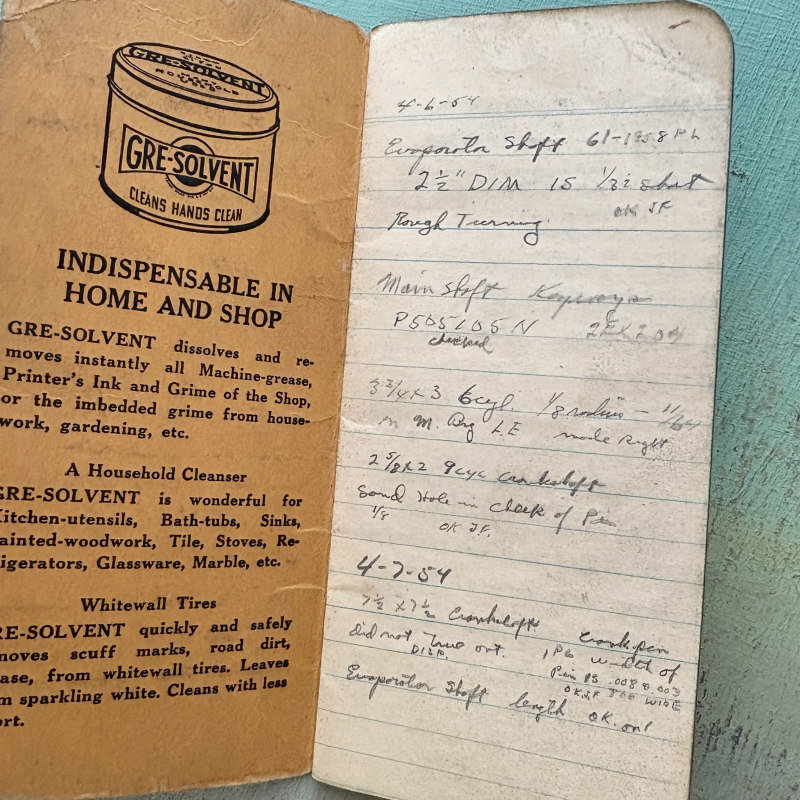 GRE-SOLVENT
GRE-SOLVENT
CLEANS HANDS CLEAN
INDISPENSABLE IN
HOME AND SHOP
GRE-SOLVENT dissolves and re-
moves instantly all Machine-grease,
Printer's Ink and Grime of the Shop,
or the imbedded grime from house-
work, gardening, etc.
A Household Cleanser
GRE-SOLVENT is wonderful for
Kitchen-utensils, Bath-tubs, Sinks,
ainted-woodwork, Tile, Stoves, Re-
igerators, Glassware, Marble, etc.
Whitewall Tires
RE-SOLVENT quickly and safely
moves scuff marks, road dirt,
ease, from whitewall tires. Leaves
m sparkling white. Cleans with less
ort.
4-6-54
Evaporator Shaft 61-1958
2 1/2" DIM IS 1/32 short
OK JF
Rough Turning
Main Shaft Keyways
P505105N
checked
3 3/4 x 3 6 cyl. 1/8 radius - 11/64
M. Brg L.E made right
2 5/8 x 2 9 cyl crankshaft
Sand Hole in cheek of Pin
1/8 OK JF.
4-7-54
7 1/2 x 7 1/2 Crankshaft
did not true out.
Crankpin
width of
Pin .008 & .003
OK JF TOO WIDE
Evaporator Shaft length OK.